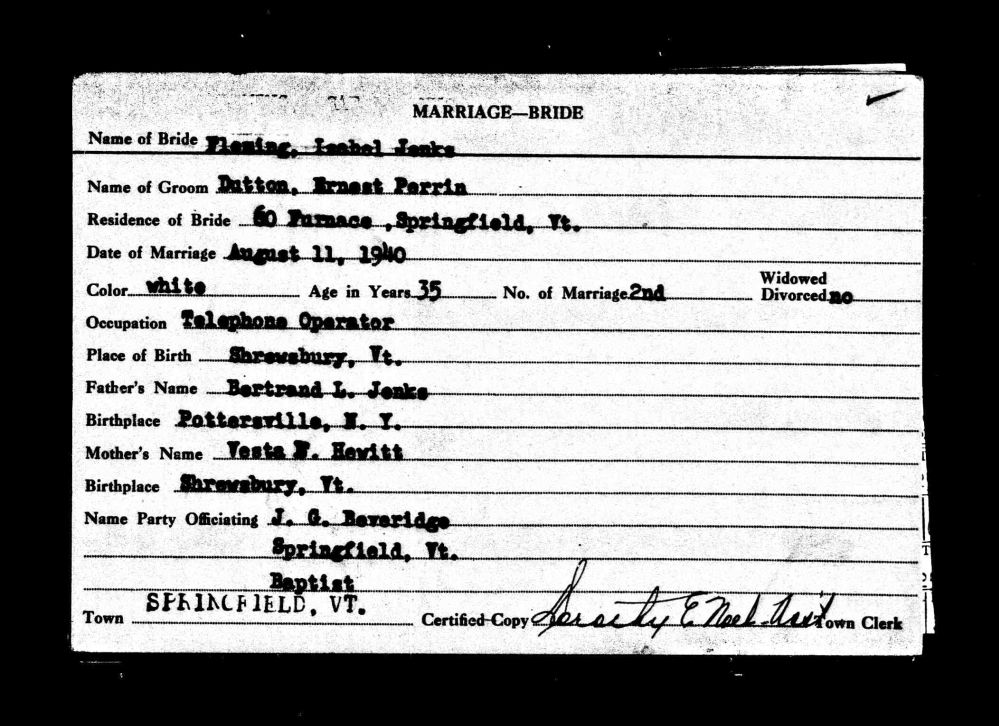 MARRIAGE—BRIDE
Name of Bride Fleming, Isabel Jenks
Name of Groom Dutton, Ernest Perrin
Residence of Bride 60 Furnace ,Springfield, Vt.
Date of Marriage August 11, 1940
Color white Age in Years 35 No. of Marriage 2nd Widowed Divorced no
Occupation Telephone Operator
Place of Birth Shrewsbury, Vt.
Father's Name Bertrand L. Jenks
Birthplace Pottersville, N. Y.
Mother's Name Vesta F. Hewitt
Birthplace Shrewsbury, Vt.
Name Party Officiating J. G. Beveridge
Springfield, Vt.
Baptist
Town SPRINGFIELD, VT. Certified Copy Dorothy E. Neel Asst Town Clerk